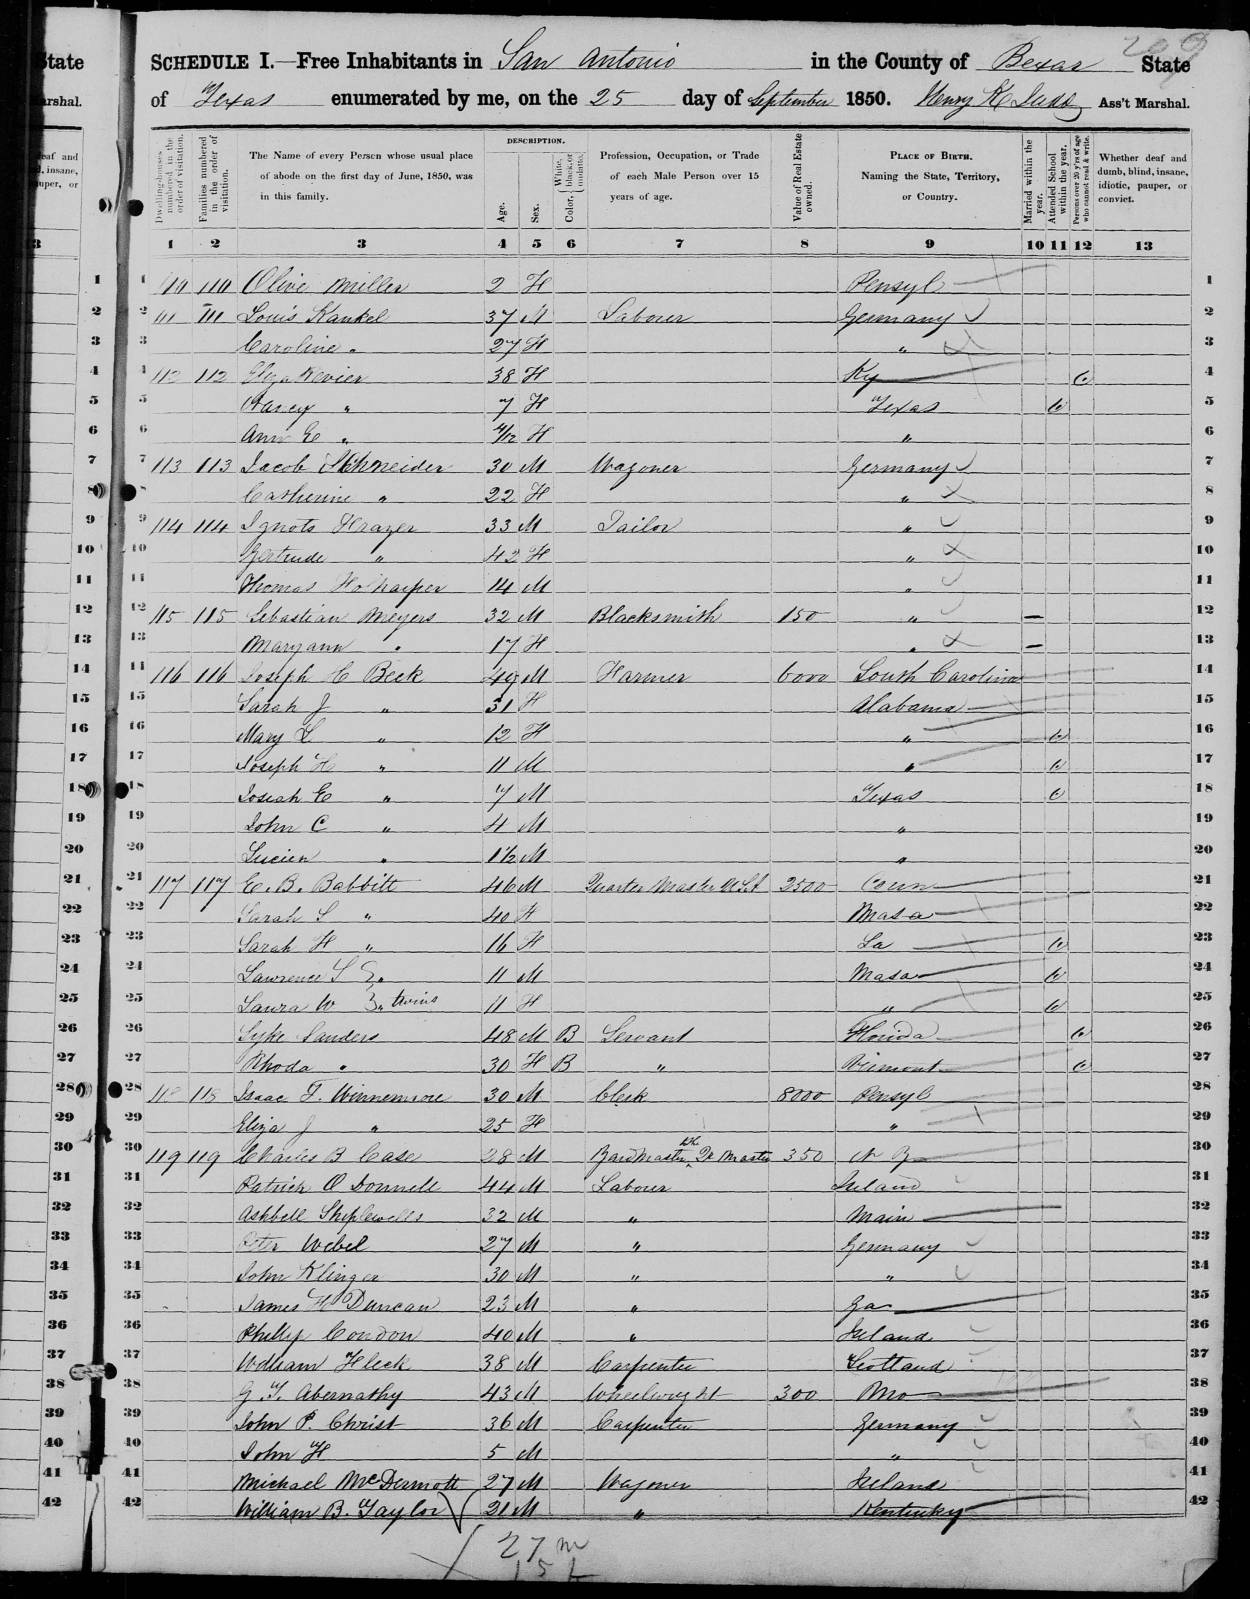 State
209
SCHEDULE I.—Free Inhabitants in San Antonio in the County of Bexar State
arshal.
of Texas enumerated by me, on the 25 day of September 1850. Henry K Judd Ass't Marshal.
eaf and
d, insane,
auper, or
3
Dwelling-houses numbered in the order of visitation.
Families numbered in the order of visitation.
The Name of every Person whose usual place of abode on the first day of June, 1850, was in this family.
DESCRIPTION.
Age.
Sex.
Color, { White, black, or mulatto.
Profession, Occupation, or Trade of each Male Person over 15 years of age.
Value of Real Estate owned.
PLACE OF BIRTH. Naming the State, Territory, or Country.
Married within the year.
Attended School within the year.
Persons over 20 y'rs of age who cannot read & write.
Whether deaf and dumb, blind, insane, idiotic, pauper, or convict.
1 2 3 4 5 6 7 8 9 10 11 12 13
1 1 110 110 Olive Miller 2 F Pensyl 1
2 2 111 111 Louis Kankel 37 M Labour Germany 2
3 3 Caroline " 27 F " 3
4 4 112 112 Eliza Kevier 38 F Ky 4
5 5 " 7 F Texas 5
6 6 Ann E " 4/12 F " 6
7 7 113 113 Jacob Schneider 30 M Wagoner Germany 7
8 8 Catherine " 22 F " 8
9 9 114 114 Ignots Frazer 33 M Tailor " 9
10 10 Gertrude " 42 F " 10
11 11 Thomas 14 M " 11
12 12 115 115 Sebastian Meyers 32 M Blacksmith 150 " — 12
13 13 Maryann " 17 F " — 13
14 14 116 116 Joseph C Beck 49 M Farmer 6000 South Carolina 14
15 15 Sarah J " 31 F Alabama 15
16 16 Mary L " 12 F " 16
17 17 Joseph H " 11 M " 17
18 18 Josiah E " 7 M Texas 18
19 19 John C " 4 M " 19
20 20 Lucien " 1½ M " 20
21 21 117 117 E. B. Babbitt 46 M Quarter Master USA 2500 Conn 21
22 22 Sarah S " 40 F Masa 22
23 23 Sarah H " 16 F La 23
24 24 Lawrence S " 11 M Masa 24
25 25 Laura W " twins 11 F " 25
26 26 Syke Sanders 48 M B Servant Florida 26
27 27 Rhoda " 30 F B " Vermont 27
28 28 118 118 Isaac T. Winnemore 30 M Clerk 8000 Pensyl 28
29 29 Eliza J " 25 F " 29
30 30 119 119 Charles B Case 28 M Yard Master Qr Master 350 N Y 30
31 31 Patrick O Donnell 44 M Labour Ireland 31
32 32 Ashbell Shiplewells 32 M " Main 32
33 33 Peter Webel 27 M " Germany 33
34 34 John Klinger 30 M " " 34
35 35 James H Duncan 23 M " Ga 35
36 36 Phillip Condon 40 M " Ireland 36
37 37 William Fleck 38 M Carpenter Scotland 37
38 38 G. T. Abernathy 43 M Wheelwright 300 Mo 38
39 39 John P. Christ 36 M Carpenter Germany 39
40 40 John F 5 M " 40
41 41 Michael McDermott 27 M Wagoner Ireland 41
42 42 William B. Taylor 21 M " Kentucky 42
27 m
15 f